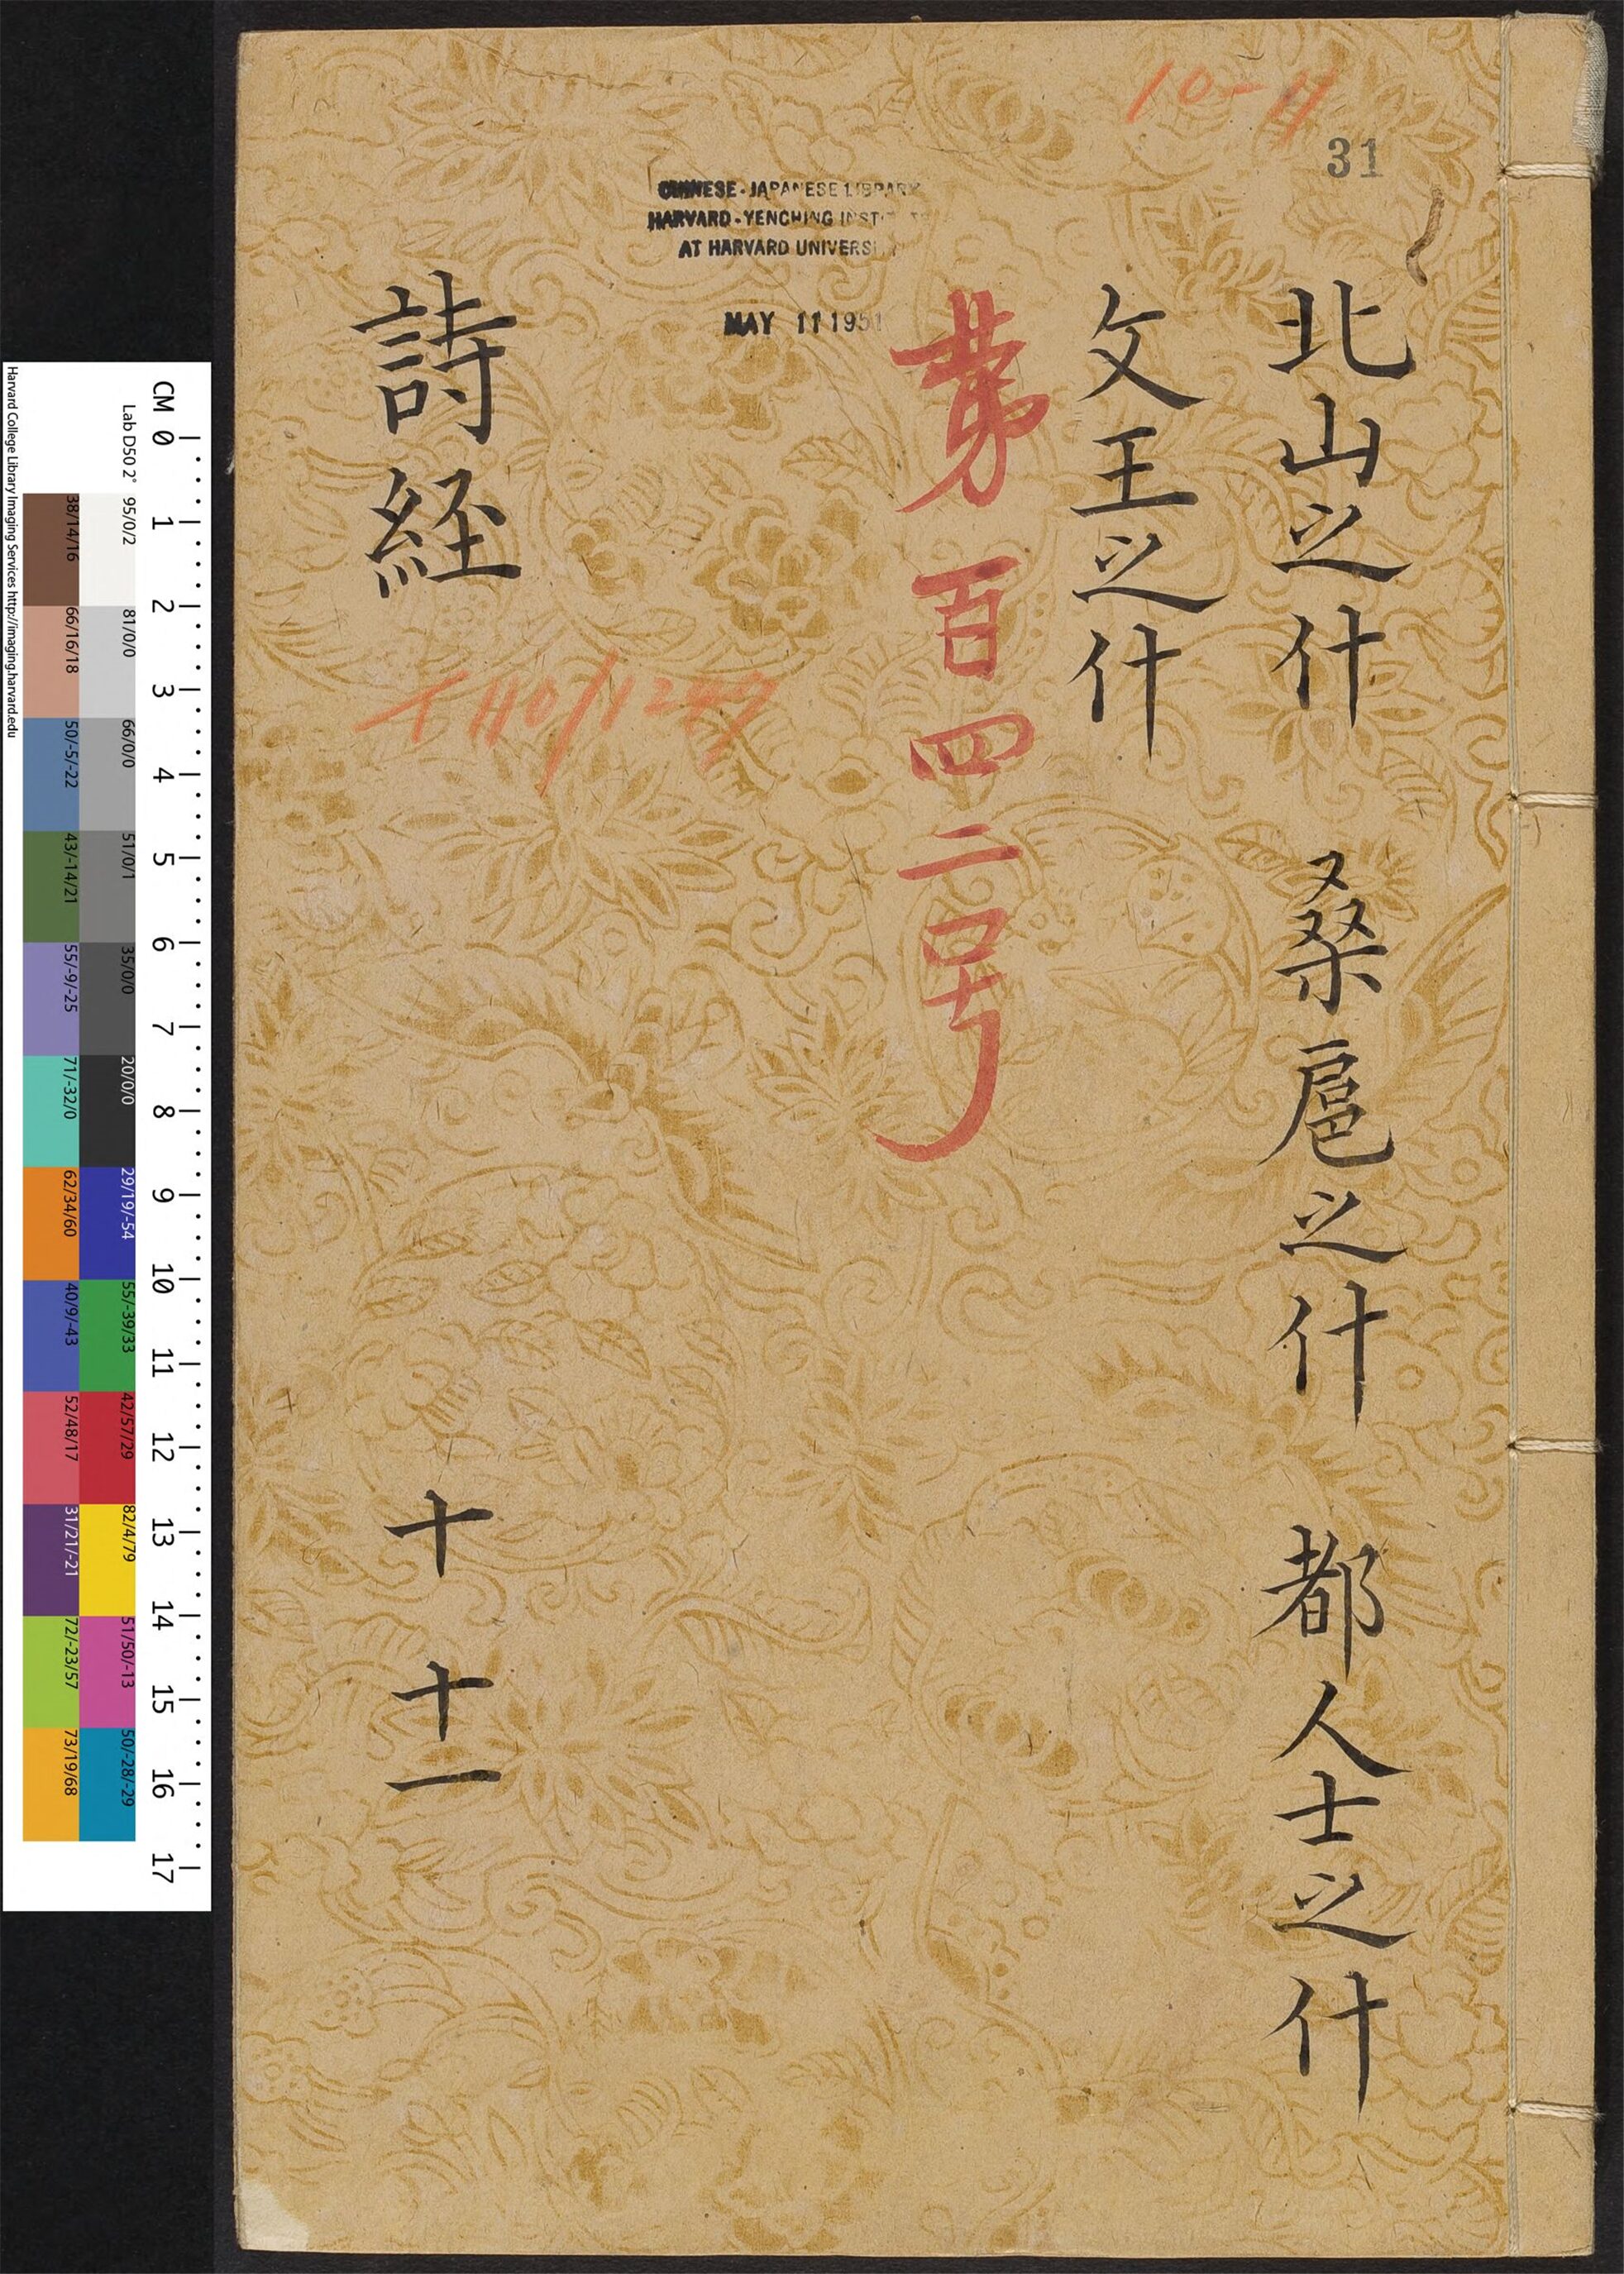 10-11
31
CHINESE-JAPANESE LIBRARY
HARVARD-YENCHING INSTIT
AT HARVARD UNIVERSI
MAY 11 1951
北山之什 桑扈之什 都人士之什
文王之什
第百四二号
詩経 十 十一
T 110/1247
CM 0 1 2 3 4 5 6 7 8 9 10 11 12 13 14 15 16 17
Lab D50 2° 95/0/2 81/0/0 66/0/0 51/0/1 35/0/0 20/0/0 29/19/-54 55/-39/33 42/57/29 82/4/79 51/50/-13 50/-28/-29
38/14/16 66/16/18 50/-5/-22 43/-14/21 55/-9/-25 71/-32/0 62/34/60 40/9/-43 52/48/17 31/21/-21 72/-23/57 73/19/68
Harvard College Library Imaging Services http://imaging.harvard.edu